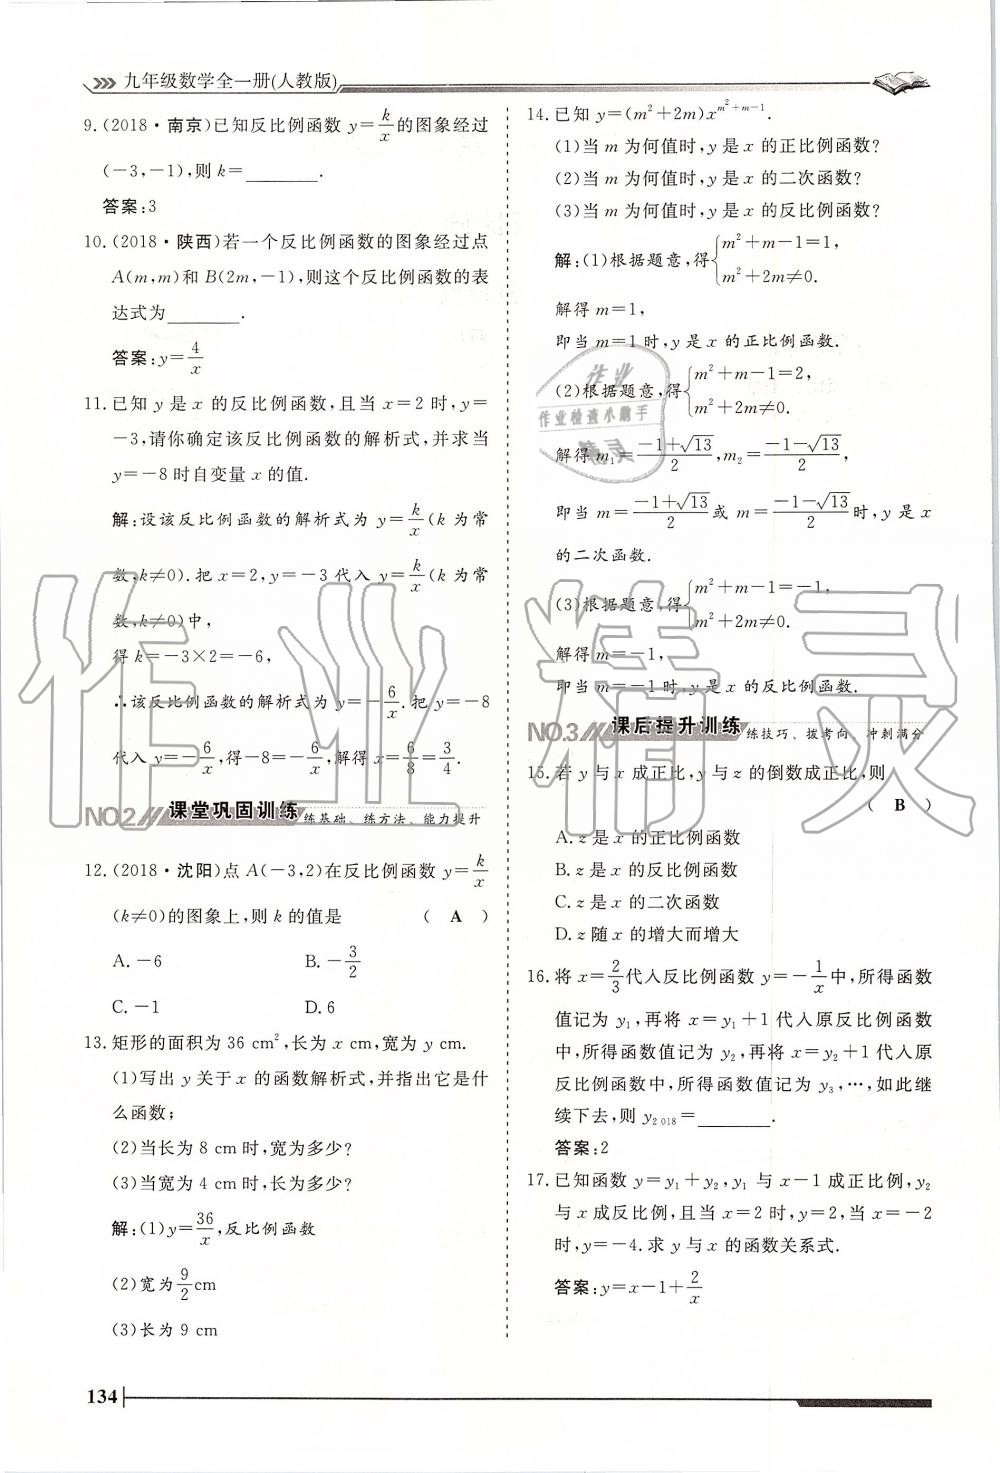 九年级数学全一册(人教版)
9.(2018·南京)已知反比例函数 y=k/x 的图象经过
(-3,-1),则 k=________.
答案:3
10.(2018·陕西)若一个反比例函数的图象经过点
A(m,m)和 B(2m,-1),则这个反比例函数的表
达式为________.
答案:y=4/x
11.已知 y 是 x 的反比例函数,且当 x=2 时,y=
-3,请你确定该反比例函数的解析式,并求当
y=-8 时自变量 x 的值.
解:设该反比例函数的解析式为 y=k/x(k 为常
数,k≠0).把 x=2,y=-3 代入 y=k/x(k 为常
数,k≠0)中,
得 k=-3×2=-6,
∴该反比例函数的解析式为 y=-6/x.把 y=-8
代入 y=-6/x,得-8=-6/x,解得 x=6/8=3/4.
NO.2 课堂巩固训练 练基础、练方法、能力提升
12.(2018·沈阳)点 A(-3,2)在反比例函数 y=k/x
(k≠0)的图象上,则 k 的值是 ( A )
A.-6 B.-3/2
C.-1 D.6
13.矩形的面积为 36 cm²,长为 x cm,宽为 y cm.
(1)写出 y 关于 x 的函数解析式,并指出它是什
么函数;
(2)当长为 8 cm 时,宽为多少?
(3)当宽为 4 cm 时,长为多少?
解:(1)y=36/x,反比例函数
(2)宽为9/2cm
(3)长为 9 cm
14.已知 y=(m²+2m)x^(m²+m-1).
(1)当 m 为何值时,y 是 x 的正比例函数?
(2)当 m 为何值时,y 是 x 的二次函数?
(3)当 m 为何值时,y 是 x 的反比例函数?
解:(1)根据题意,得{m²+m-1=1,
m²+2m≠0.
解得 m=1,
即当 m=1 时,y 是 x 的正比例函数.
(2)根据题意,得{m²+m-1=2,
m²+2m≠0.
解得 m₁=(-1+√13)/2,m₂=(-1-√13)/2,
即当 m=(-1+√13)/2 或 m=(-1-√13)/2 时,y 是 x
的二次函数.
(3)根据题意,得{m²+m-1=-1,
m²+2m≠0.
解得 m=-1,
即当 m=-1 时,y 是 x 的反比例函数.
NO.3 课后提升训练 练技巧、拔考向、冲刺满分
15.若 y 与 x 成正比,y 与 z 的倒数成正比,则
( B )
A.z 是 x 的正比例函数
B.z 是 x 的反比例函数
C.z 是 x 的二次函数
D.z 随 x 的增大而增大
16.将 x=2/3代入反比例函数 y=-1/x中,所得函数
值记为 y₁,再将 x=y₁+1 代入原反比例函数
中,所得函数值记为 y₂,再将 x=y₂+1 代入原
反比例函数中,所得函数值记为 y₃,…,如此继
续下去,则 y₂₀₁₈=________.
答案:2
17.已知函数 y=y₁+y₂,y₁ 与 x-1 成正比例,y₂
与 x 成反比例,且当 x=2 时,y=2,当 x=-2
时,y=-4.求 y 与 x 的函数关系式.
答案:y=x-1+2/x
134
作业精灵
作业
作业检查小助手
精灵